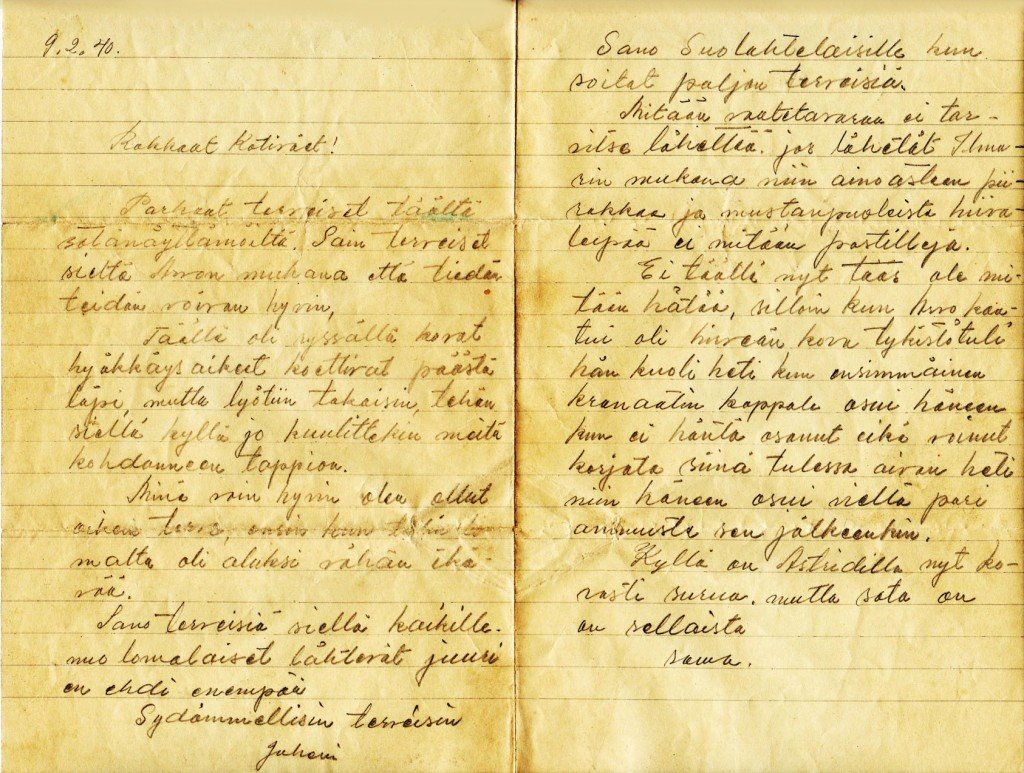 9.2.40.
Rakkaat Kotiväet!
Parhaat terveiset täältä
sotanäyttämöltä. Sain terveiset
sieltä Arvon mukana että tiedän
teidän voivan hyvin,
Täällä oli ryssällä kovat
hyökkäysaikeet koettivat päästä
läpi, mutta lyötiin takaisin, tehän
siellä kyllä jo kuulittekin meitä
kohdanneen tappion.
Minä voin hyvin olen ollut
oikein terve, ensin kun tulin lo
malta oli aluksi vähän ikä
vää.
Sano terveisiä siellä kaikille.
nuo lomalaiset lähtevät juuri
en ehdi enempää
Sydämmellisin terveisin
Juhani
Sano Suolahtelaisille kun
soitat paljon terveisiä.
Mitään vaatetavaraa ei tar-
vitse lähettää. jos lähetät Ilma-
rin mukana niin ainoasteen pii
rakkaa ja mustanpuoleista hiiva
leipää ei mitään pastilleja.
Ei täällä nyt taas ole mi-
tään hätää, silloin kun Arvo kaa-
tui oli hirveän kova tykistötuli
hän kuoli heti kun ensimmäinen
kranaatin kappale osui häneen
kun ei häntä osannut eikä voinut
korjata siinä tulessa aivan heti
niin häneen osui vielä pari
ammusta sen jälkeenkin.
Kyllä on Astridilla nyt ko-
vasti surua. mutta sota on
on sellaista
sama.